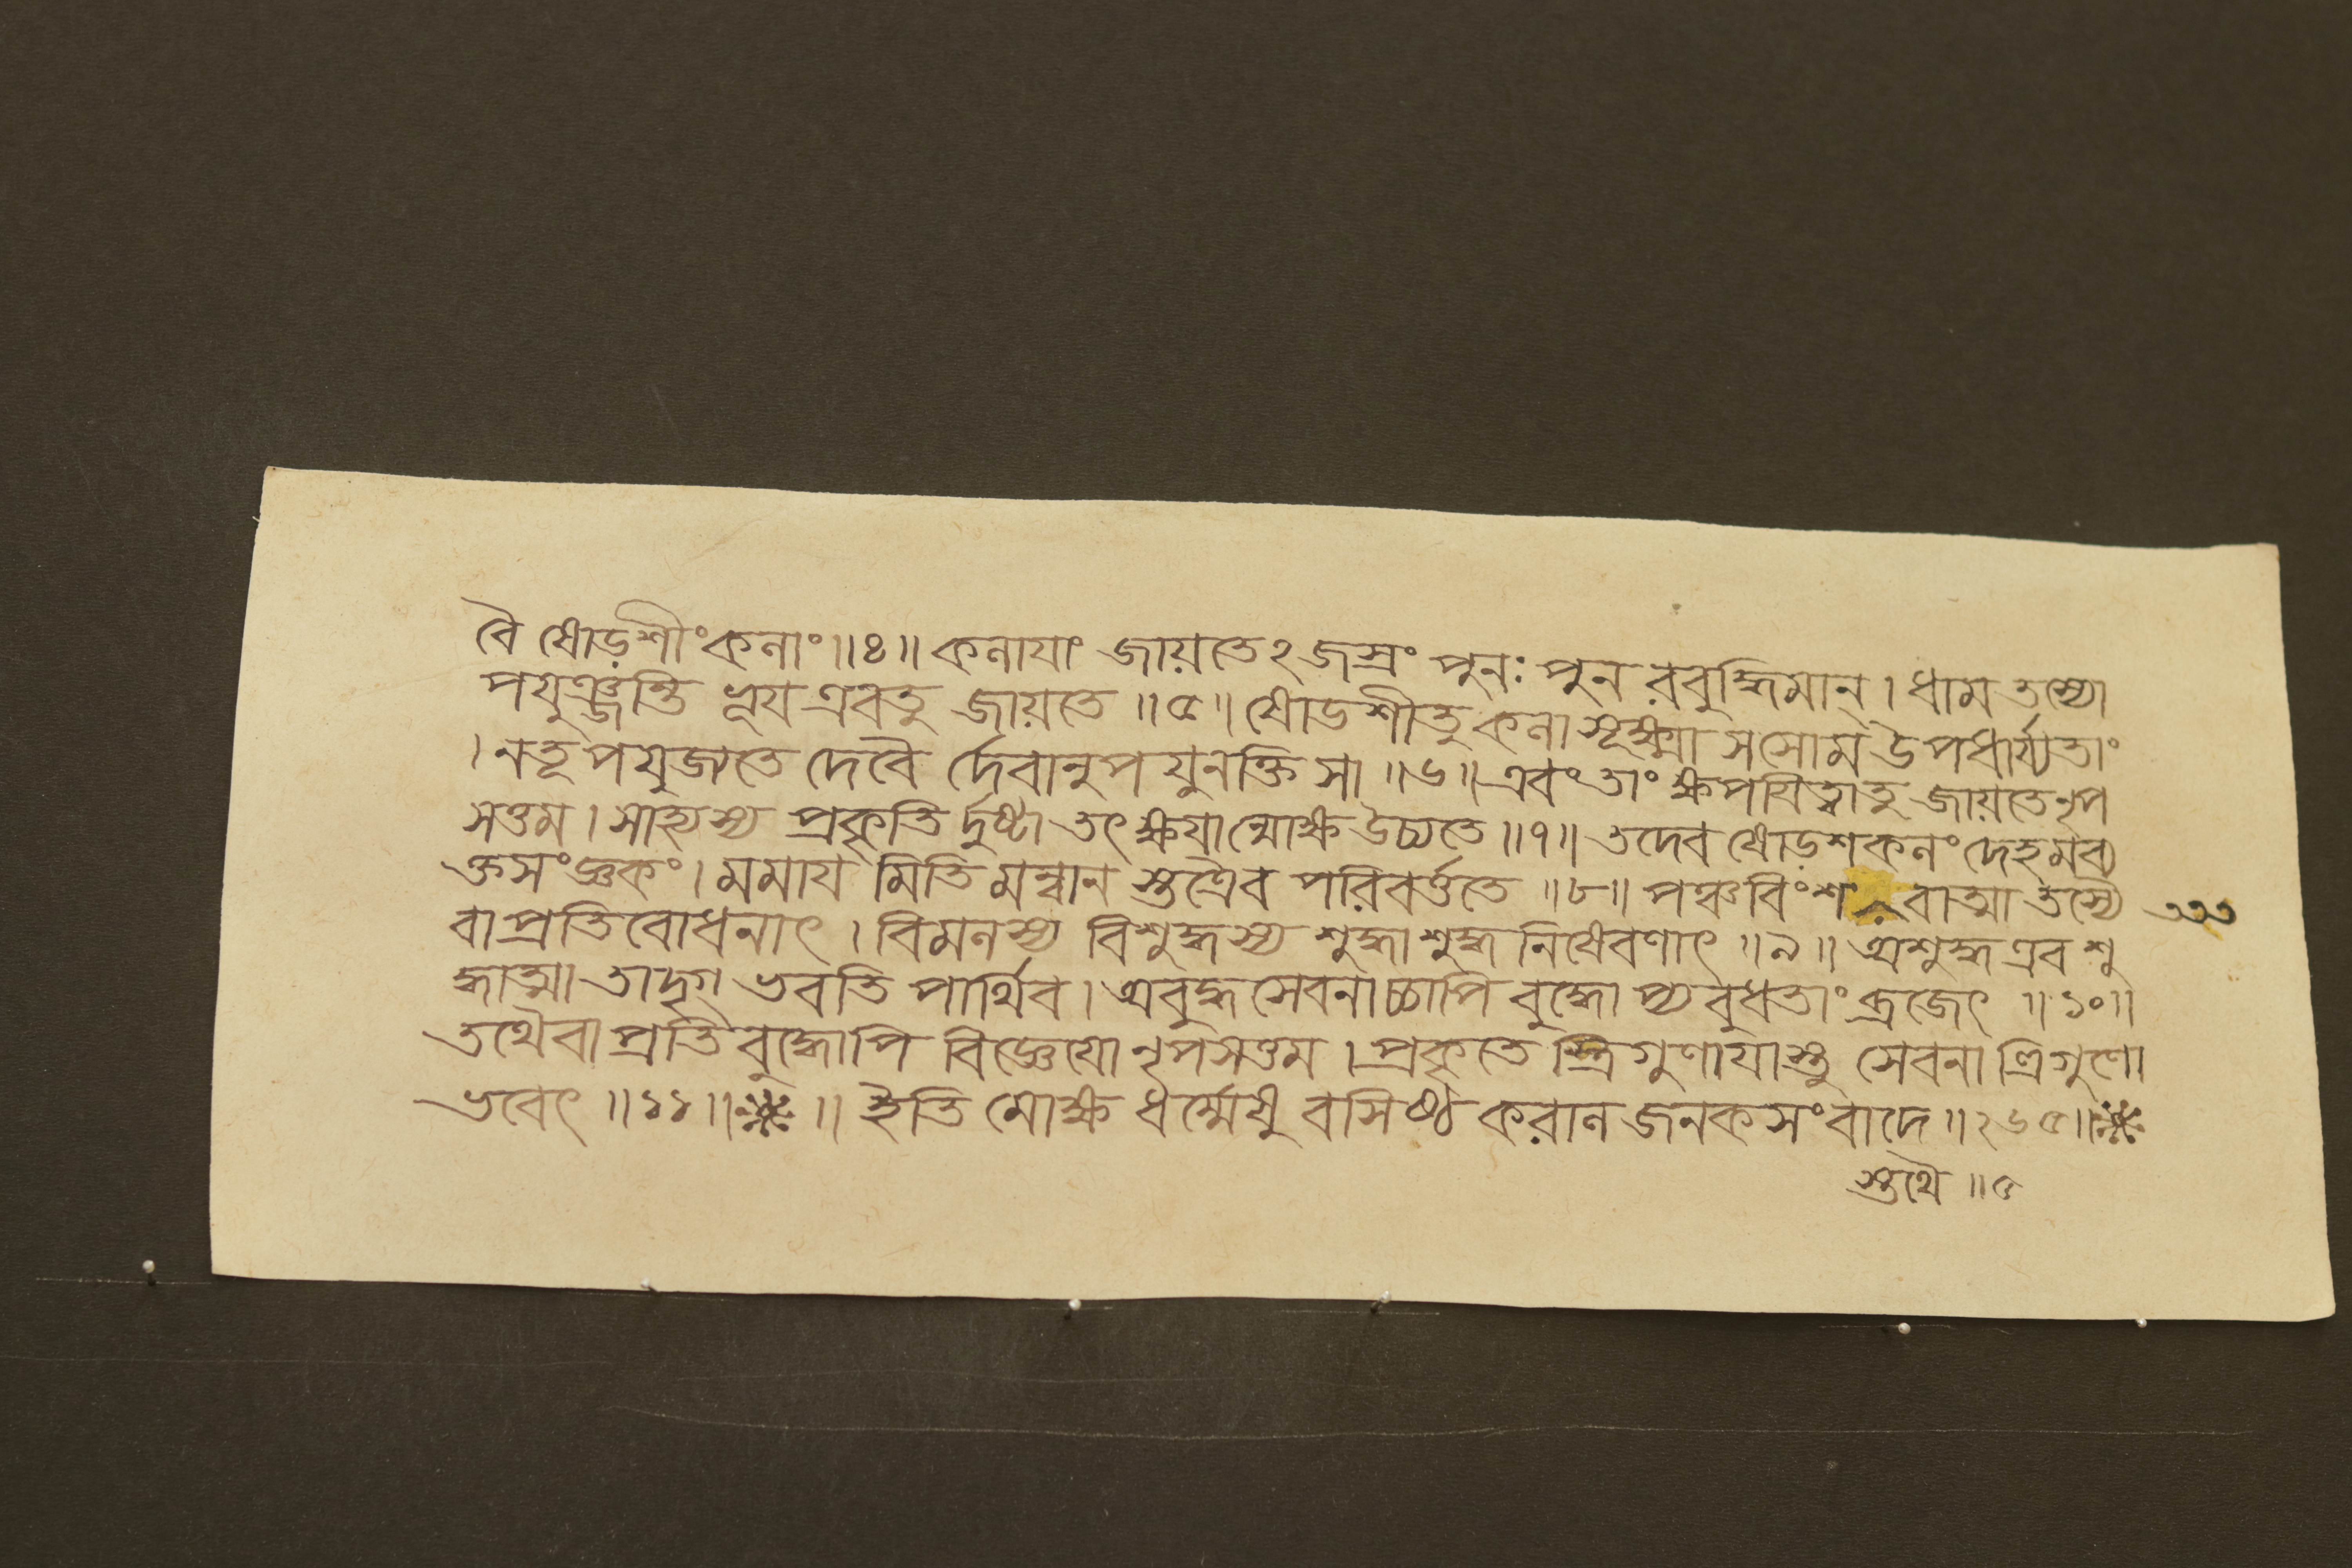 বৈ ষোড়শীং কলাং॥৪॥ কলাযাং জায়তেঽজস্রং পুনঃ পুনরবুদ্ধিমান্। ধাম তস্যো
পযুঞ্জন্তি ভূয এবতু জায়তে ॥৫॥ ষোডশীতু কলা সূক্ষ্মা সসোম উপধার্য্যতাং
। নতূপযুজ্যতে দেবৈ র্দেবানুপযুনক্তি সা ॥৬॥ এবং তাং ক্ষপযিত্বাতু জায়তে নৃপ
সত্তম। সাহ্যস্য প্রকৃতি র্দৃষ্টা তৎক্ষযান্মোক্ষ উচ্যতে ॥৭॥ তদেব ষোড়শকলং দেহমব্য
ক্তসংজ্ঞকং। মমায মিতি মন্বান স্তত্রৈব পরিবর্ত্ততে ॥৮॥ পঞ্চবিংশ বাত্মা তস্যৈ
বা প্রতিবোধনাৎ । বিমলস্য বিশুদ্ধস্য শুদ্ধাশুদ্ধ নিষেবণাৎ ॥৯॥ অশুদ্ধ এব শু
দ্ধাত্মা তাদৃগ্ ভবতি পার্থিব। অবুদ্ধ সেবনাচ্চাপি বুদ্ধোপ্য বুধতাং ব্রজেৎ ॥১০॥
তথৈবা প্রতিবুদ্ধোপি বিজ্ঞেযো নৃপসত্তম। প্রকৃতে স্ত্রিগুণাযাস্তু সেবনা ত্রিগুণো
ভবেৎ ॥১১॥ ॥ ইতি মোক্ষ ধর্ম্মেষু বসিষ্ঠ করাল জনক সংবাদে ॥২৬৫॥
স্তথৈ ॥৫